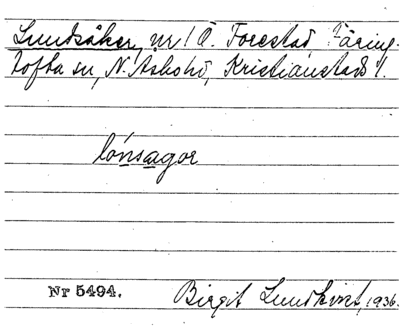 Lundsåker, nr 1 Ö. Forestad, Färing-
tofta sn, N. Åsbo hd, Kristianstads l.
lónsagor
Nr 5494.
Birgit Lundkvist, 1936.